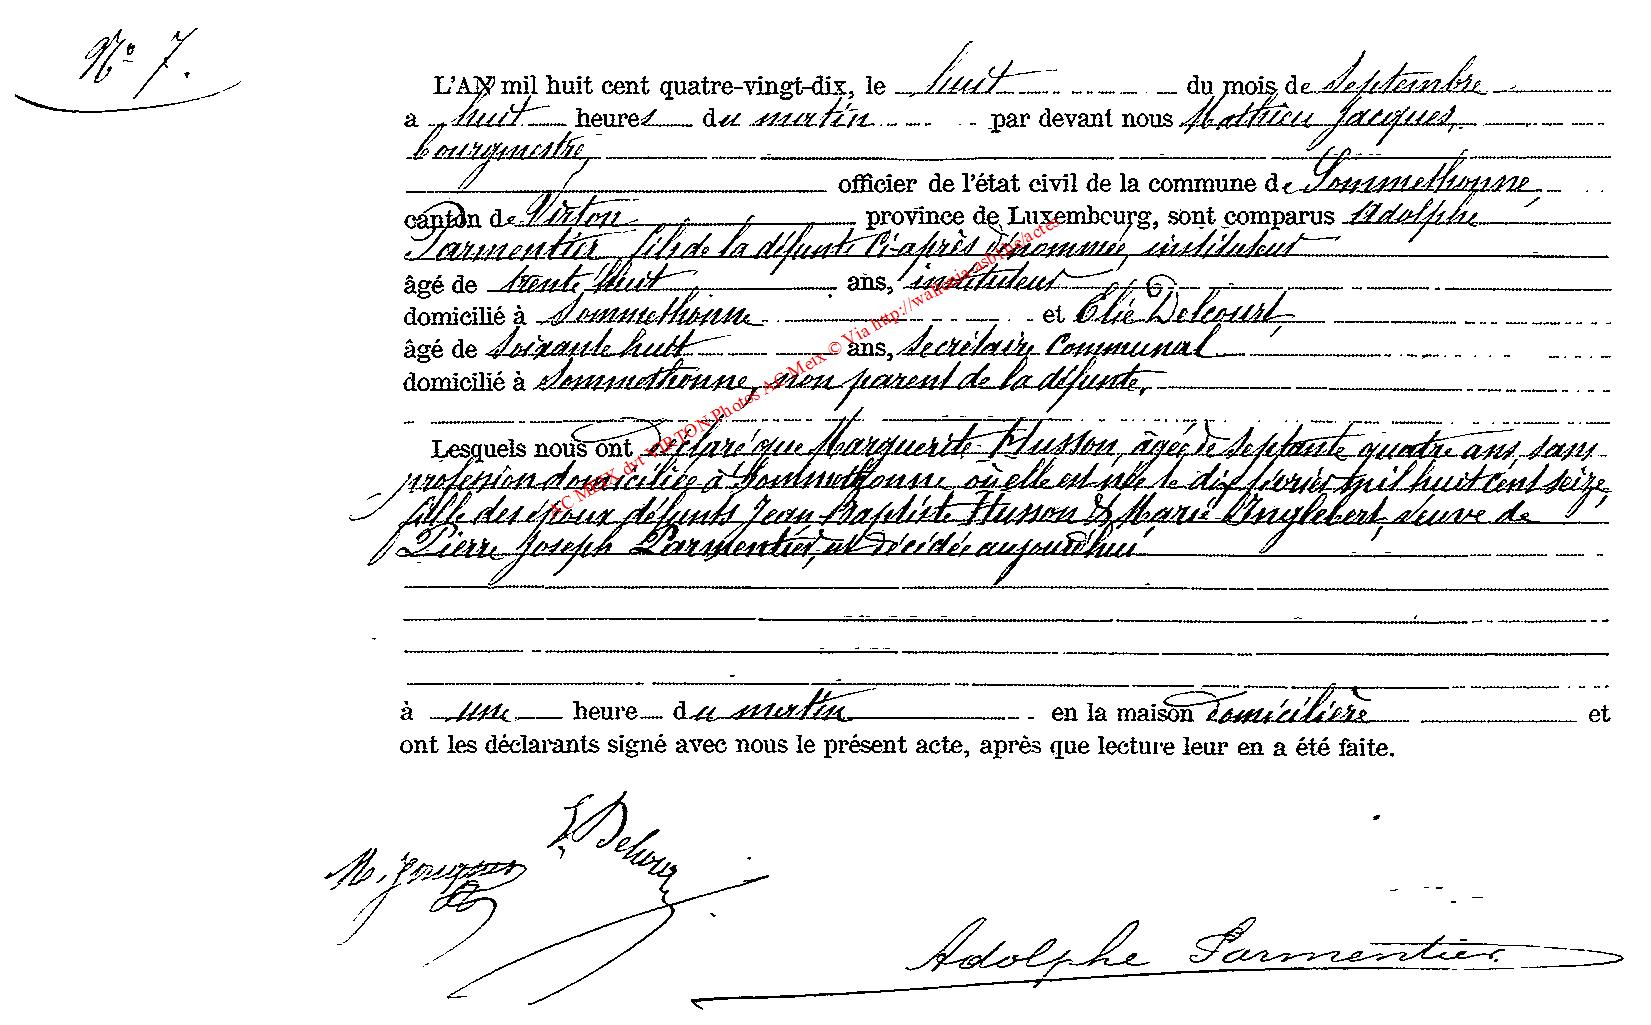 N° 7.
L'AN mil huit cent quatre-vingt-dix, le huit du mois de Septembre
a huit heures du matin par devant nous Mathieu Jacques,
bourgmestre,
officier de l'état civil de la commune de Sommethonne,
canton de Virton province de Luxembourg, sont comparus Adolphe
Parmentier, fils de la défunte ci-après dénommée, instituteur
âgé de trente huit ans, instituteur
domicilié à Sommethonne et Elie Delcourt,
âgé de soixante huit ans, secrétaire communal
domicilié à Sommethonne, non parent de la défunte,
Lesquels nous ont déclaré que Marguerite Husson, âgée de septante quatre ans, sans
profession domiciliée à Sommethonne où elle est née le dix février mil huit cent seize,
fille des époux défunts Jean-Baptiste Husson & Marie Anglebert, veuve de
Pierre Joseph Parmentier, est décédée aujourd'hui
à une heure du matin en la maison domicilière et
ont les déclarants signé avec nous le présent acte, après que lecture leur en a été faite.
M. Jacques
E. Delcourt
Adolphe Parmentier
AC MEIX dvt VIRTON Photos AC Meix © Via http://wallonia-asbl.be/actes